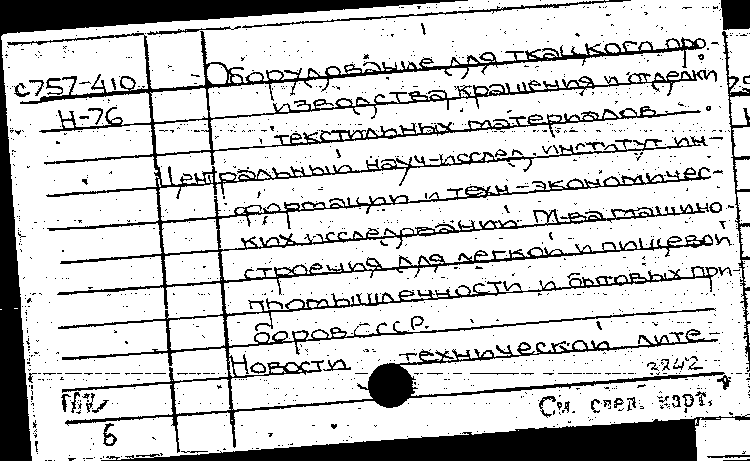 с757-410
Н-76
Оборудование для ткацкого про-
изводства, крашения и отделки
текстильных материалов.
Центральный науч-исслед. институт ин-
формации и техн-экономичес-
ких исследований М-ва машино-
строения для легкой и пищевой
промышленности и бытовых при-
боров СССР.
Новости технической лите-
3242
См. след. карт.
6